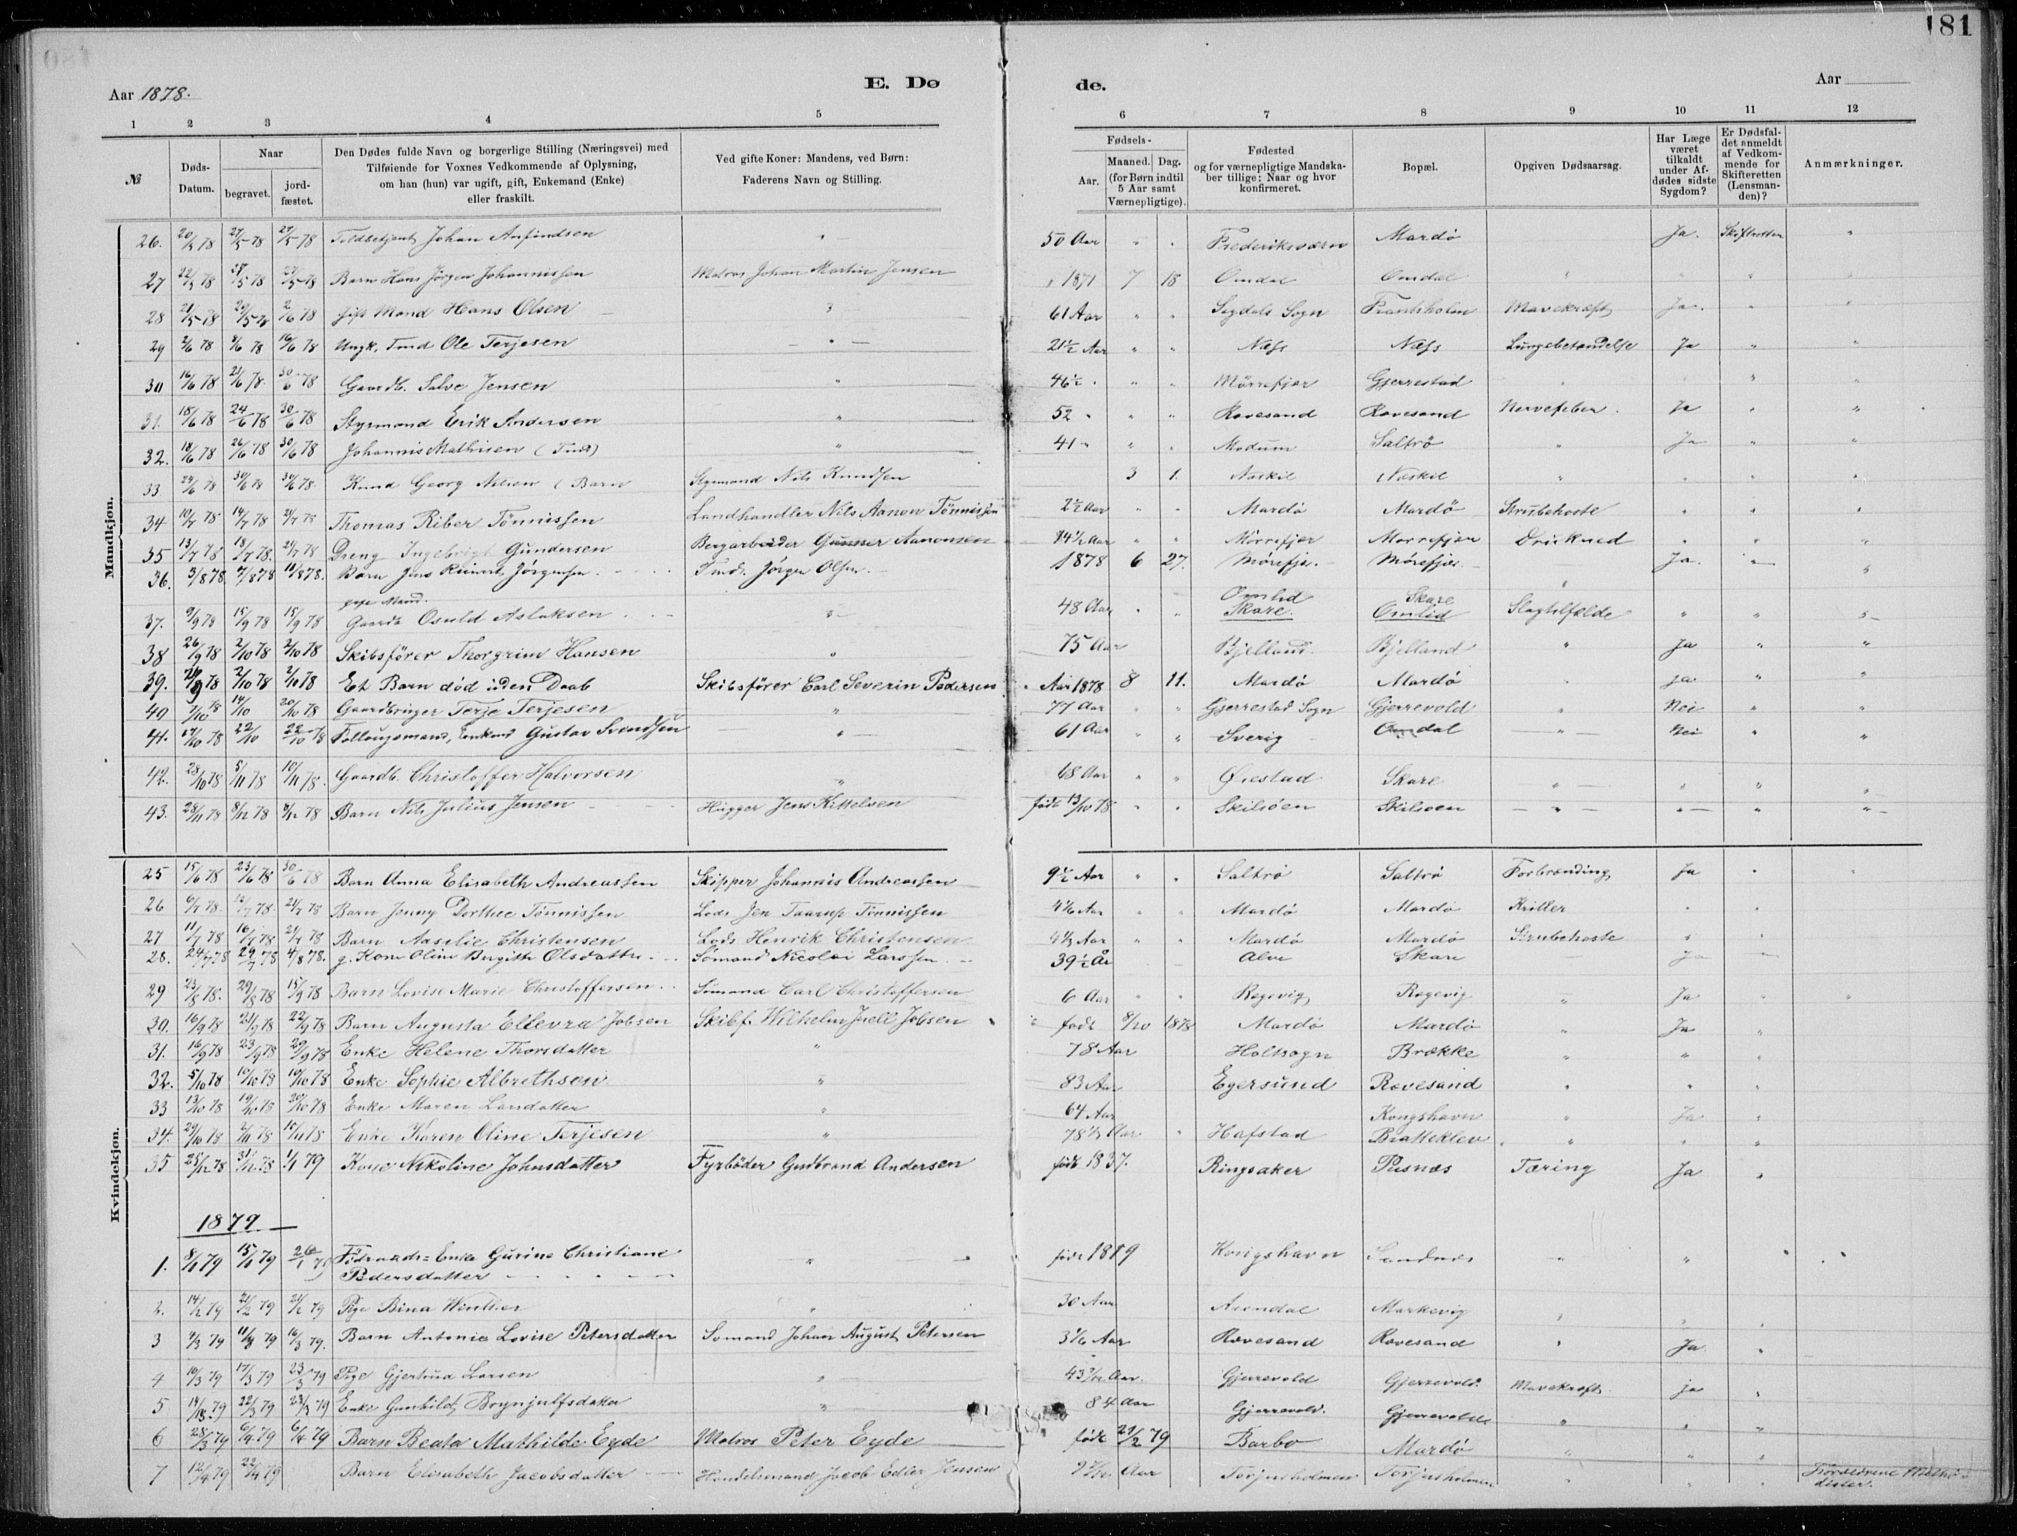 181
Aar 1878.
E. Dø
de.
Aar
1 2 3 4 5 6 7 8 9 10 11 12
№
Døds-Datum.
Naar
begravet.
jord-fæstet.
Den Dødes fulde Navn og borgerlige Stilling (Næringsvei) med
Tilføiende for Voxnes Vedkommende af Oplysning,
om han (hun) var ugift, gift, Enkemand (Enke)
eller fraskilt.
Ved gifte Koner: Mandens, ved Børn:
Faderens Navn og Stilling.
Fødsels-
Aar.
Maaned. Dag.
(for Børn indtil
5 Aar samt
Værnepligtige).
Fødested
og for værnepligtige Mandska-
ber tillige: Naar og hvor
konfirmeret.
Bopæl.
Opgiven Dødsaarsag.
Har Læge
været
tilkaldt
under Af-
dødes sidste
Sygdom?
Er Dødsfal-
det anmeldt
af Vedkom-
mende for
Skifteretten
(Lensman-
den)?
Anmærkninger.
Mandkjøn.
26. 20/5 78 27/5 78 27/5 78 Toldbetjent Johan Anfindsen " 50 Aar " " Frederiksværn Mardø Ja. Skifteretten "
27 22/5 78 Barn Hans Jørgen Johannissen Matros Johan Martin Jensen 1871 7 18 Omdal Omdal
28 21/5 78 2/6 78 gift Mand Hans Olsen 61 Aar " " Sogn Mavekræft Ja.
29 2/6 78 9/6 78 16/6 78 Ungk. Ole Terjesen 21½ Aar " " Næs Næs Lungebetændelse Ja
30 16/6 78 21/6 78. 30/6 78 Gaardb. Salve Jensen " 46½ " " " Mørrefjær Gjerrestad
31. 18/6 78 24/6 78 30/6 78 Styrmand Erik Andersen " 52 " " " Ravesand Ravesand Nervefeber. Ja
32. 18/6 78 26/6 78 30/6 78 Johannis Mathisen " 41 " " Modum Saltrø " Ja
33 24/6 78 30/6 78 30/6 78. Knud Georg Nilsen (Barn Styrmand Nils Knudsen 3 1. Naskil Naskil
34 10/7 78 14/7 78 21/7 78 Thomas Riber Tønnissen Landhandler Nils Aanon Tønnissen 2½ Aar " " Mardø Mardø Strubehoste
35 13/7 78 18/7 78. 21/7 78 Dreng Ingebrigt Gundersen Bergarbeider Gunner Aanonsen 14½ Aar " " Mørrefjær Mørrefjær Drukned
36. 3/8 78 7/8 78 11/8 78. Barn Jens Reinert Jørgensen Jørgen Olsen 1878 6 27. Mørefjær Mørefjær Ja.
37. 9/9 78 15/9 78 15/9 78 gift Mand. Gaardb Osuld Aslaksen 48 Aar Omlid Skare. Skare Omlid Slagtilfælde
38 26/9 78 2/10 78 2/10 78 Skibsfører Thorgrim Hansen " 75 Aar Bjelland Bjelland " Ja
39. 78 2/10 78 2/10 78 Et Barn død uden Daab Skibsfører Carl Severin Pedersen Aar 1878 8 11. Mardø Mardø Ja.
40 7/10 78 14/10 20/10 78 Gaardbruger Terje Terjesen " 77 Aar Gjerrestad Sogn Gjerrevold " Nei
41. 17/10 78 22/10 22/10 78 Enkemd Gustav Svendsen " 61 Aar " Sverig Omdal " Nei
42. 28/10 78 5/11 78 10/11 78. Gaardb. Christoffer Halvorsen " 68 Aar " " Øiestad Skare
43. 28/11 78 8/12 78 8/12 78 Barn Nils Julius Jensen Hugger Jens Kittelsen født 13/10 78 " " Skilsøen Skilsøen
Kvindekjøn.
25 15/6 78 23/6 78 30/6 78 Barn Anna Elisabeth Andreassen Skipper Johannis Andreassen 9½ Aar " " Saltrø Saltrø Forbrænding Ja
26 6/7 78. 12/7 78. 21/7 78 Barn Jenny Dorthee Tønnissen Lods Jen Taarup Tønnissen Aar Mardø Mardø Kriller
27 11/7 78 16/7 78 21/7 78 Barn Aaselie Christensen Lods Henrik Christensen Aar Mardø Mardø Strubehoste
28. 24/7 78 29/7 78 4/8 78. g. Kone Oline Bergitte Olsdatter Sømand Nicolai Larssen 39½ År Alve Skare Ja
29 23/8 78. 29/8 78 15/9 78 Barn Lovise Marie Christoffersen Sømand Carl Christoffersen 6 Aar Regevig Regevig Ja
30. 16/9 78 21/9 78 22/9 78 Barn Augusta Ellevra Jobsen Skibsf. Wilhelm Juell Jobsen født 8/10 1878 Mardø Mardø " Ja
31. 16/9 78 23/9 78 29/9 78 Enke Helene Thorsdatter " 78 Aar Holtsogn Brække
32. 5/10 78 10/10 78 19/10 78 Enke Sophie Albrethsen " 83 Aar Egersund Ravesand
33 13/10 78 19/10 78 20/10 78 Enke Maren Larsdatter " 64 Aar Kongshavn " Ja
34. 29/10 78 2/11 78 10/11 78 Enke Karen Oline Terjesen " 78½ Aar Hafstad Bratteklev
35 25/12 78 31/12 78 1/1 79 Kone Nikoline Johnsdatter Fyrbøder Gudbrand Andersen født 1837. Ringsaker Pusnæs Tæring Ja
1879
1. 8/1 79 15/1 79 26/1 79 Føderaads-Enke Gurine Christiane
Pedersdatter " født 1819 Kongshavn Sandnæs
2. 14/2 79 21/2 79 Pige Bina Winther " 30 Aar Arendal Markevig
3 4/3 79 11/3 79 16/3 79. Barn Antonie Lovise Petersdatter Sømand Johan August Petersen Aar Ravesand Ravesand " Ja
4 10/3 79 17/3 79 23/3 79 Pige Gjertrud Larsen " Aar Gjerrevold Gjerrevold. Mavekræft ja
5 79 22/3 79 23/3 79 Enke Gunbild Brynjulfsdatter " 84 Aar Gjerrevold. Gjerrevold
6 28/3 79 6/4 79 6/4 79 Barn Beata Mathilde Eyde Matros Peter Eyde født 21/2 79 Barbo Mardø
7 12/4 79 22/4 79 Barn Elisabeth Jacobsdatter Handelsmand Jacob Edler Jensen Aar Torjusholmen Torjusholmen Forældrene Metho-
dister.